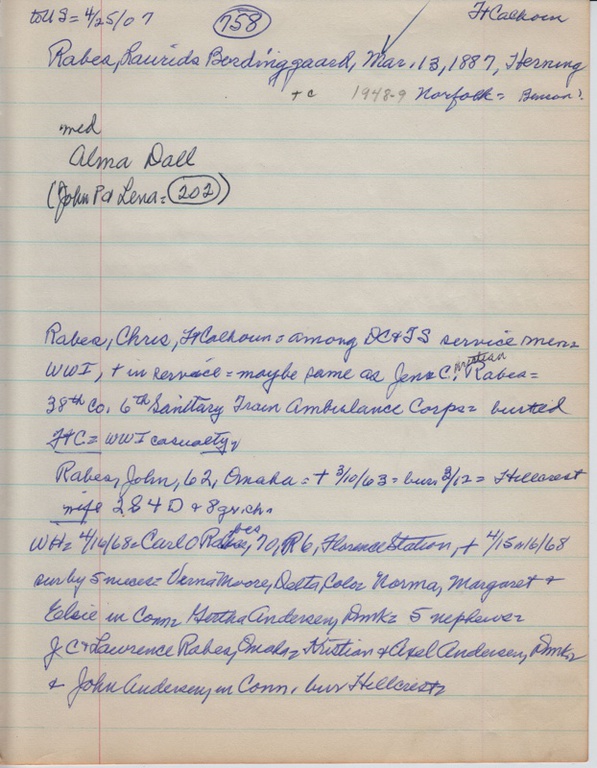 to US = 4/25/07 758 Ft Calhoun
Rabes, Laurids Bordinggaard, Mar. 13, 1887, Herning
+ c 1948-9 Norfolk = Benson?
med
Alma Dall
(John P & Lena = 202)
Rabes, Chris, Ft Calhoun = among DC & FS service men =
WWI, + in service = maybe same as Jens C. Kristian Rabes =
38th Co. 6th Sanitary Train Ambulance Corps = buried
Ft C = WWI casualty,
Rabes, John, 62, Omaha = + 3/10/63 = bur 3/12 = Hillcrest
wife 2 S 4 D & 8 gr.ch.
WH = 4/16/68 = Carl O Rabes, 70, R 6, Florence Station, + 4/15 16/68
surby 5 nieces = Verna Moore, Norma, Margaret +
Elsie in Conn = Andersen, Dmk = 5 nephews =
J C & Lawrence Rabes, Omaha = Kristian & Axel Andersen, Dmk =
& John Andersen, in Conn, bur Hillcrest